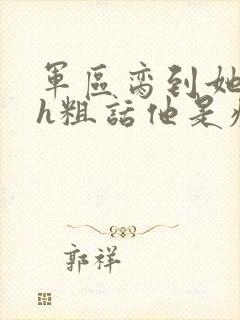 軍區高到她
h粗話他是
郭祥